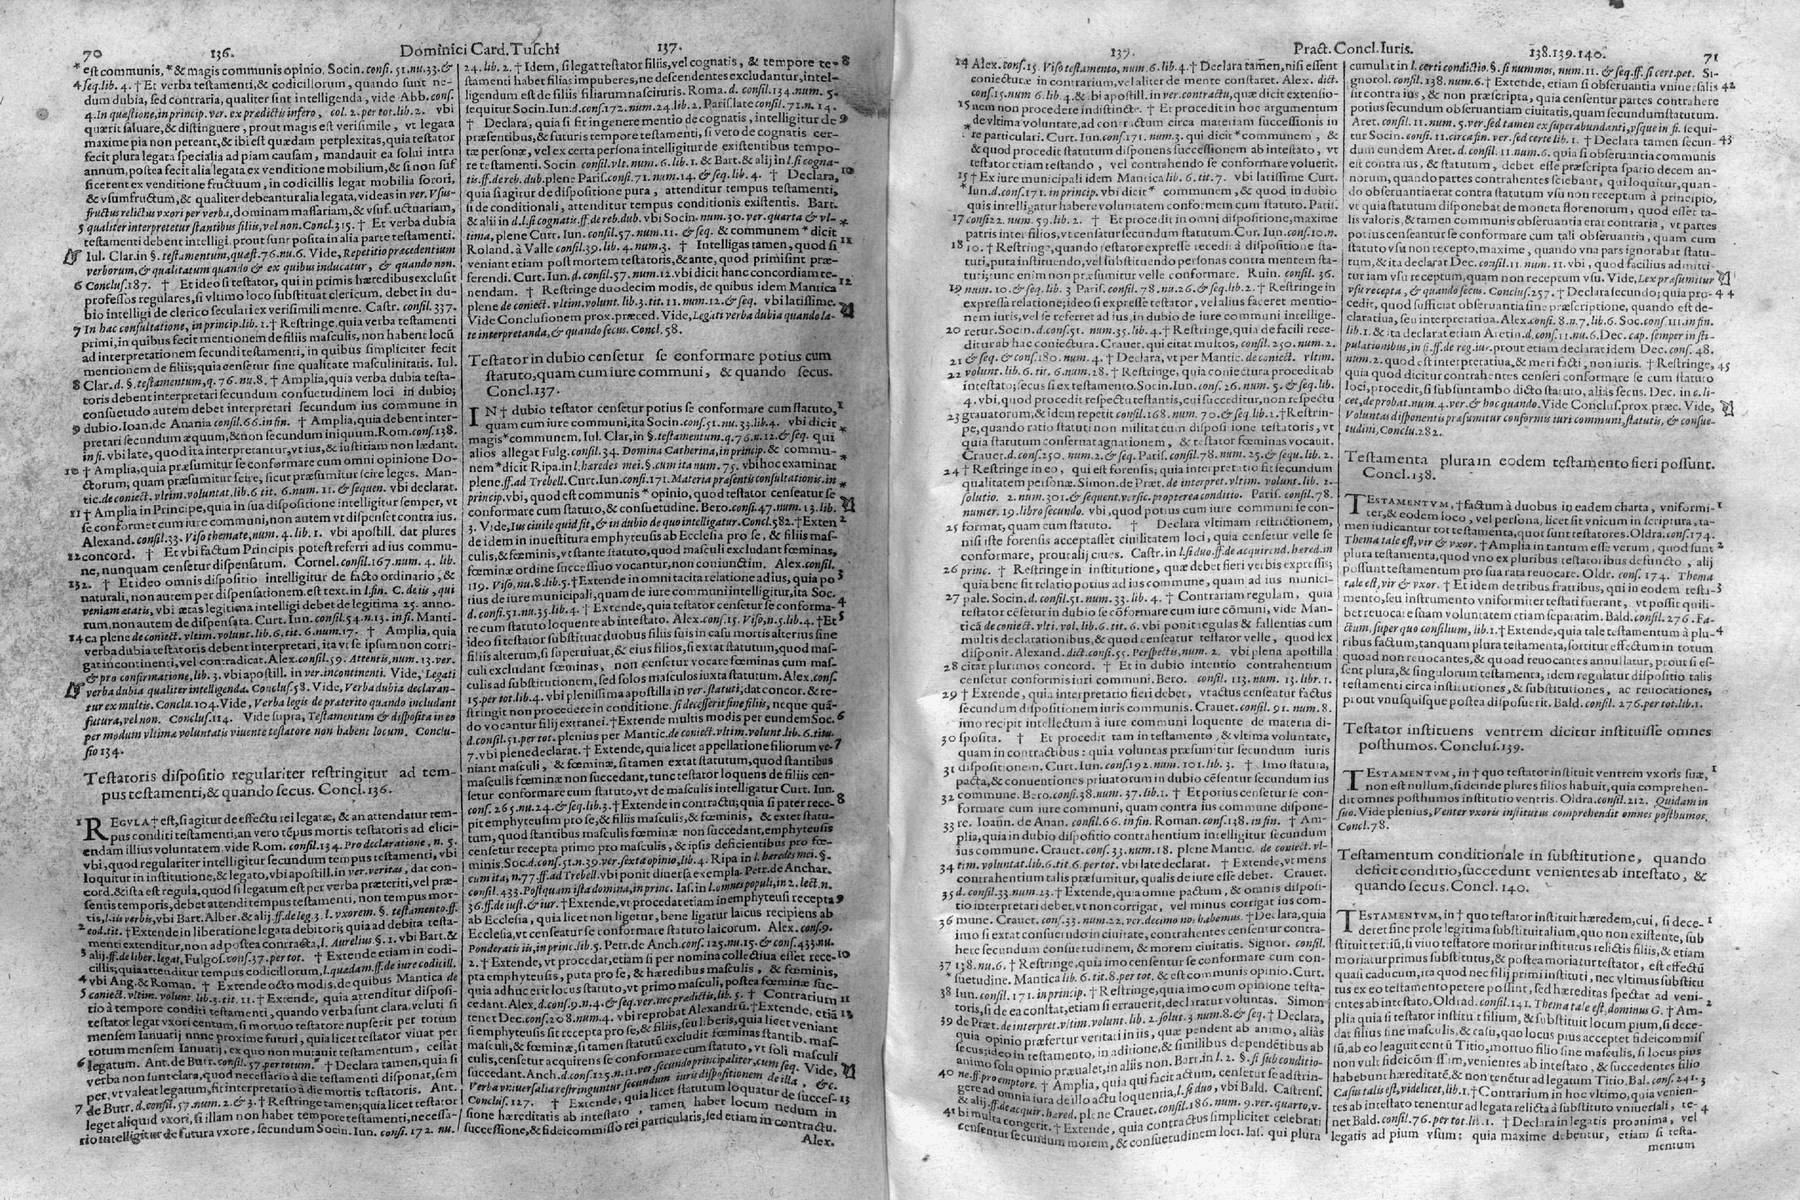 70 136. Dominici Card. Tuſchi 137.
* eſt communis, * & magis communis opinio. Socin. conſi. 51. nu. 33. &
4 ſeq. lib. 4. † Et verba teſtamenti, & codicillorum, quando ſunt ne-
dum dubia, ſed contraria, qualiter ſint intelligenda, vide Abb. conſ.
4. In quæſtione, in princip. ver. ex prædictis infero, col. 2. per tot. lib. 2. vbi
quærit ſaluare, & diſtinguere, prout magis eſt veriſimile, vt legata
maxime pia non pereant, & ibi eſt quædam perplexitas, quia teſtator
fecit plura legata ſpecialia ad piam cauſam, mandauit ea ſolui intra
annum, poſtea fecit alia legata ex venditione mobilium, & ſi non ſuf
ficerent ex venditione fructuum, in codicillis legat mobilia ſorori,
& vſumfructum, & qualiter debeantur alia legata, videas in ver. Vſus-
fructus relictus vxori per verba, dominam maſſariam, & vſuf. uctuariam,
5 qualiter interpretetur ſtantibus filiis, vel non. Concl. 315. † Et verba dubia
teſtamenti debent intelligi, prout ſunt poſita in alia parte teſtamenti.
Iul. Clar. in §. teſtamentum, quæſt. 76. nu. 6. Vide, Repetitio præcedentium
verborum, & qualitatum quando & ex quibus inducatur, & quando non.
6 Concluſ. 187. † Et ideo ſi teſtator, qui in primis hæredibus excluſit
profeſſos regulares, ſi vltimo loco ſubſtituat clericum, debet in du-
bio intelligi de clerico ſeculari ex veriſimili mente. Caſtr. conſil. 337.
7 In hac conſultatione, in princip. lib. 1. † Reſtringe, quia verba teſtamenti
primi, in quibus fecit mentionem de filiis maſculis, non habent locū
ad interpretationem ſecundi teſtamenti, in quibus ſimpliciter fecit
mentionem de filiis; quia cenſetur ſine qualitate maſculinitatis. Iul.
8 Clar. d. §. teſtamentum, q. 76. nu. 8. † Amplia, quia verba dubia teſta-
toris debent interpretari ſecundum conſuetudinem loci in dubio;
conſuetudo autem debet interpretari ſecundum ius commune in
9 dubio. Ioan. de Anania conſil. 66. in fin. † Amplia, quia debent inter-
pretari ſecundum æquum, & non ſecundum iniquum. Rom. conſ. 138.
in fi. vbi late, quod ita interpretantur, vt ius, & iuſtitiam non lædant.
10 † Amplia, quia præſumitur ſe conformare cum omni opinione Do-
ctorum, quam præſumitur ſcire, ſicut præſumitur ſcire leges. Man-
tic. de coniect. vltim. voluntat. lib. 6 tit. 6. num. 11. & ſequen. vbi declarat.
11 † Amplia in Principe, quia in ſua diſpoſitione intelligitur ſemper, vt
ſe conformet cum iure communi, non autem vt diſpenſet contra ius.
Alexand. conſil. 33. Viſo themate, num. 4. lib. 1. vbi apoſtill. dat plures
12 concord. † Et vbi factum Principis poteſt referri ad ius commu-
ne, nunquam cenſetur diſpenſatum. Cornel. conſil. 167. num. 4. lib.
132. † Et ideo omnis diſpoſitio intelligitur de facto ordinario, &
naturali, non autem per diſpenſationem. eſt text. in l. fin. C. de iis, qui
veniam ætatis, vbi ætas legitima intelligi debet de legitima 25. anno-
rum, non autem de diſpenſata. Curt. Iun. conſil. 54. n. 13. in fi. Manti-
14 ca plene de coniect. vltim. volunt. lib. 6. tit. 6. num. 17. † Amplia, quia
verba dubia teſtatoris debent interpretari, ita vt ſe ipſum non corri-
gat incontinenti, vel contradicat. Alex. conſil. 59. Attentis, num. 13. ver.
& pro confirmatione, lib. 3. vbi apoſtill. in ver. incontinenti. Vide, Legati
verba dubia qualiter intelligenda. Concluſ. 58. Vide, Verba dubia declaran-
tur ex multis. Conclu. 104. Vide, Verba legis de præterito quando includant
futura, vel non. Concluſ. 114. Vide ſupra, Teſtamentum & diſpoſita in eo
per modum vltimæ voluntatis viuente teſtatore non habent locum. Conclu-
ſio 134.
Teſtatoris diſpoſitio regulariter reſtringitur ad tem-
pus teſtamenti, & quando ſecus. Concl. 136.
1 REGVLA † eſt, ſi agitur de effectu rei legatæ, & an attendatur tem-
pus conditi teſtamenti, an vero tēpus mortis teſtatoris ad elici-
endam illius voluntatem. vide Rom. conſil. 134. Pro declaratione, n. 5.
vbi, quod regulariter intelligitur ſecundum tempus teſtamenti, vbi
loquitur in inſtitutione, & legato, vbi apoſtill. in ver. veritas, dat con-
cord. & iſta eſt regula, quod ſi legatum eſt per verba præteriti, vel præ-
ſentis temporis, debet attendi tempus teſtamenti, non tempus mor-
tis, l. iis verbis, vbi Bart. Alber. & alij. ff. de leg. 3. l. vxorem. §. teſtamento. ff.
2 eod. tit. † Extende in liberatione legata debitoris quia ad debita teſta-
menti extenditur, non ad poſtea contracta, l. Aurelius §. 1. vbi Bart. &
3 alij. ff. de liber. legat. Fulgoſ. conſ. 37. per tot. † Extende etiam in codi-
cillis; quia attenditur tempus codicillorum, l. quædam. ff. de iure codicill.
4 vbi Ang. & Roman. † Extende octo modis, de quibus Mantica de
5 coniect. vltim. volunt. lib. 3. tit. 11. † Extende, quia attenditur diſpoſi-
tio à tempore conditi teſtamenti, quando verba ſunt clara, veluti ſi
teſtator legat vxori centum, ſi mortuo teſtatore nupſerit per totum
menſem Ianuarij nunc proxime futuri, quia licet teſtator viuat per
totum menſem Ianuarij, ex quo non mutauit teſtamentum, ceſſat
6 legatum. Ant. de Butr. conſil. 57. per totum. † Declara tamen, quia ſi
verba non ſunt clara, quod neceſſario à die teſtamenti diſponat, ſem
per, vt valeat legatum, fit interpretatio à die mortis teſtatoris. Ant.
7 de Butr. d. conſil. 57. num. 2. & 3. † Reſtringe tamen; quia licet teſtator
leget aliquid vxori, ſi illam non habet tempore teſtamenti, neceſſa-
rio intelligitur de futura vxore, ſecundum Socin. Iun. conſi. 172. nu.
24. lib. 2. † Idem, ſi legat teſtator filiis, vel cognatis, & tempore te- 8
ſtamenti habet filias impuberes, ne deſcendentes excludantur, intel-
ligendum eſt de filiis filiarum naſcituris. Roma. d. conſil. 134. num. 5.
ſequitur Socin. Iun. d. conſ. 172. num. 24. lib. 2. Pariſ. late conſil. 71. n. 14.
† Declara, quia ſi fit in genere mentio de cognatis, intelligitur de 9
præſentibus, & futuris tempore teſtamenti, ſi vero de cognatis cer-
tæ perſonæ, vel ex certa perſona intelligitur de exiſtentibus tempo-
re teſtamenti. Socin. conſil. vlt. num. 6. lib. 1. & Bart. & alij in l. ſi cogna-
tis. ff. de reb. dub. plene Pariſ. conſ. 71. num. 14. & ſeq. lib. 4. † Declara, 10
quia ſi agitur de diſpoſitione pura, attenditur tempus teſtamenti,
ſi de conditionali, attenditur tempus conditionis exiſtentis. Bart.
& alii in d. l. ſi cognatis. ff. de reb. dub. vbi Socin. num. 30. ver. quarta & vl- *
tima, plene Curt. Iun. conſil. 57. num. 11. & ſeq. & communem * dicit *
Roland. à Valle conſil. 39. lib. 4. num. 3. † Intelligas tamen, quod ſi 11
veniant etiam poſt mortem teſtatoris, & ante, quod primi ſint præ-
ferendi. Curt. Iun. d. conſil. 57. num. 12. vbi dicit hanc concordiam te-
nendam. † Reſtringe duodecim modis, de quibus idem Mantica 12
plene de coniect. vltim. volunt. lib. 3. tit. 11. num. 12. & ſeq. vbi latiſſime.
Vide Concluſionem prox. præced. Vide, Legati verba dubia quando la-
te interpretanda, & quando ſecus. Concl. 58.
Teſtator in dubio cenſetur ſe conformare potius cum
ſtatuto, quam cum iure communi, & quando ſecus.
Concl. 137.
IN † dubio teſtator cenſetur potius ſe conformare cum ſtatuto, 1
quam cum iure communi, ita Socin. conſil. 51. nu. 33. lib. 4. vbi dicit
magis * communem, Iul. Clar. in §. teſtamentum. q. 76. n. 12. & ſeq. qui *
alios allegat Fulg. conſil. 34. Domina Catherina, in princip. & commu-
nem * dicit Ripa. in l. hæredes mei. §. cum ita num. 75. vbi hoc examinat *
plene. ff. ad Trebell. Curt. Iun. conſi. 171. Materia præſentis conſultationis. in
princip. vbi, quod eſt communis * opinio, quod teſtator cenſeatur ſe *
conformare cum ſtatuto, & conſuetudine. Bero. conſi. 47. num. 13. lib.
3. Vide, Ius ciuile quid ſit, & in dubio de quo intelligatur. Concl. 582. † Exten 2
de idem in inueſtitura emphyteuſis ab Eccleſia pro ſe, & filiis maſ-
culis, & fœminis, vt ſtante ſtatuto, quod maſculi excludant fœminas,
fœminæ ordine ſucceſſiuo vocantur, non coniunctim. Alex. conſil.
119. Viſo, nu. 8. lib. 5. † Extende in omni tacita relatione ad ius, quia po 3
tius de iure municipali, quam de iure communi intelligitur, ita Soc.
d. conſi. 51. nu. 35. lib. 4. † Extende, quia teſtator cenſetur ſe conforma- 4
re cum ſtatuto loquente ab inteſtato. Alex. conſ. 15. Viſo, n. 5. lib. 4. † Et 5
ideo ſi teſtator ſubſtituat duobus filiis ſuis in caſu mortis alterius ſine
filiis alterum, ſi ſuperuiuat, & eius filios, ſi extat ſtatutum, quod maſ-
culi excludant fœminas, non cenſetur vocare fœminas cum maſ-
culis ad ſubſtitutionem, ſed ſolos maſculos iuxta ſtatutum. Alex. conſ.
15. per tot. lib. 4. vbi pleniſſima apoſtilla in ver. ſtatuti; dat concor. & re-
ſtringit non procedere in conditione, ſi deceſſerit ſine filiis, neque quā-
do vocantur filij extranei. † Extende multis modis per eundem Soc. 6
d. conſil. 51. per tot. plenius per Mantic. de coniect. vltim. volunt. lib. 6. titu.
7. vbi plene declarat. † Extende, quia licet appellatione filiorum ve- 7
niant maſculi, & fœminæ, ſi tamen extat ſtatutum, quod ſtantibus
maſculis fœminæ non ſuccedant, tunc teſtator loquens de filiis cen-
ſetur conformare cum ſtatuto, vt de maſculis intelligatur Curt. Iun.
conſ. 265. nu. 24. & ſeq. lib. 3. † Extende in contractu; quia ſi pater rece- 8
pit emphyteuſim pro ſe, & filiis maſculis, & fœminis, & extet ſtatu-
tum, quod ſtantibus maſculis fœminæ non ſuccedant, emphyteuſis
cenſetur recepta primo pro maſculis, & ipſis deficientibus pro fœ-
minis. Soc. d. conſ. 51. n. 39. ver. ſexta opinio, lib. 4. Ripa in l. hæredes mei. §.
cum ita, n. 77. ff. ad Trebell. vbi ponit diuerſa exempla. Petr. de Anchar.
conſil. 433. Poſtquam iſta domina, in princ. Iaſ. in l. omnes populi, in 2. lect. n.
36. ff. de iuſt. & iur. † Extende, vt procedat etiam in emphyteuſi recepta 9
ab Eccleſia, quia licet non ligetur, bene ligatur laicus recipiens ab
Eccleſia, vt cenſeatur ſe conformare ſtatuto laicorum. Alex. conſ. 9.
Ponderatis iis, in princ. lib. 5. Petr. de Anch. conſ. 125. nu. 15. & conſ. 433. nu.
2. † Extende, vt procedat, etiam ſi per nomina collectiua eſſet rece- 10
pta emphyteuſis, puta pro ſe, & hæredibus maſculis, & fœminis,
quia adhuc erit locus ſtatuto, vt primo maſculi, poſtea fœminæ ſuc-
cedant. Alex. d. conſ. 9. n. 4. & ſeq. ver. nec prædictis, lib. 5. † Contrarium 11
tenet Dec. conſ. 208. num. 4. vbi reprobat Alexandrū. † Extende, etiā 12
ſi emphyteuſis ſit recepta pro ſe, & filiis, ſeu liberis, quia licet veniant
maſculi, & fœminæ, ſi tamen ſtatutū excludit fœminas ſtantib. maſ-
culis, cenſetur acquirens ſe conformare cum ſtatuto, vt ſoli maſculi
ſuccedant. Anch. d. conſ. 125. n. 11. ver. ſecundo principaliter, cum ſeq. Vide,
Verba vniuerſalia reſtringuntur ſecundum iuris diſpoſitionem de illa, &c.
Concluſ. 127. † Extende, quia licet ſtatutum loquatur de ſucceſ- 13
ſione hæreditatis ab inteſtato, tamen habet locum nedum in
ſucceſſione, & fideicommiſſo rei particularis, ſed etiam in contractu.
Alex.
137. Pract. Concl. Iuris. 138. 139. 140. 71
14 Alex. conſ. 15. Viſo teſtamento, num. 6. lib. 4. † Declara tamen, niſi eſſent
coniecturæ in contrarium, vel aliter de mente conſtaret. Alex. dict.
conſ. 15. num 6. lib. 4. & ibi apoſtill. in ver. contractu, quæ dicit extenſio-
15 nem non procedere indiſtincte. † Et procedit in hoc argumentum
de vltima voluntate, ad contractum circa materiam ſucceſſionis in
* re particulari. Curt. Iun. conſ. 171. num. 3. qui dicit * communem, &
& quod procedit ſtatutum diſponens ſucceſſionem ab inteſtato, vt
teſtator etiam teſtando, vel contrahendo ſe conformare voluerit.
15 † Ex iure municipali idem Mantica lib. 6. tit. 7. vbi latiſſime Curt.
* Iun. conſ. 171. in princip. vbi dicit * communem, & quod in dubio
quis intelligatur habere voluntatem conformem cum ſtatuto. Pariſ.
17 conſi. 22. num. 59. lib. 2. † Et procedit in omni diſpoſitione, maxime
patris inter filios, vt cenſatur ſecundum ſtatutum. Cur. Iun. conſ. 10. n.
18 10. † Reſtringe, quando teſtator expreſſe recedit à diſpoſitione ſta-
tuti, puta inſtituendo, vel ſubſtituendo perſonas contra mentem ſta-
tuti; tunc enim non præſumitur velle conformare. Ruin. conſil. 36.
19 num. 10. & ſeq. lib. 3 Pariſ. conſil. 78. nu. 26. & ſeq. lib. 2. † Reſtringe in
expreſſa relatione; ideo ſi expreſſe teſtator, vel alius faceret mentio-
nem iuris, vel ſe referret ad ius, in dubio de iure communi intellige-
20 retur. Socin. d. conſ. 51. num. 35. lib. 4. † Reſtringe, quia de facili rece-
ditur ab hac coniectura. Crauet. qui citat multos, conſil. 250. num. 2.
21 & ſeq. & conſ. 180. num. 4. † Declara, vt per Mantic. de coniect. vltim.
22 volunt. lib. 6. tit. 6. num. 28. † Reſtringe, quia coniectura procedit ab
inteſtato; ſecus ſi ex teſtamento. Socin. Iun. conſ. 26. num. 5. & ſeq. lib.
4. vbi, quod procedit reſpectu teſtantis, cui ſucceditur, non reſpectu
23 grauatorum, & idem repetit conſil. 168. num. 70. & ſeq. lib. 2. † Reſtrin-
ge, quando ratio ſtatuti non militat cum diſpoſitione teſtatoris, vt
quia ſtatutum conſeruat agnationem, & teſtator fœminas vocauit.
Crauet. d. conſ. 250. num. 2. & ſeq. Pariſ. conſil. 78. num. 25. & ſequ. lib. 2.
24 † Reſtringe in eo, qui eſt forenſis; quia interpretatio fit ſecundum
qualitatem perſonæ. Simon. de Præt. de interpret. vltim. volunt. lib. 2.
ſolutio. 2. num. 301. & ſequent. verſic. propterea conditio. Pariſ. conſil. 78.
numer. 19. libro ſecundo. vbi, quod potius cum iure communi ſe con-
25 format, quam cum ſtatuto. † Declara vltimam reſtrictionem,
niſi iſte forenſis acceptaſſet ciuilitatem loci, quia cenſetur velle ſe
conformare, prout alij ciues. Caſtr. in l. ſi duo. ff. de acquirend. hæred. in
26 princ. † Reſtringe in inſtitutione, quæ debet fieri verbis expreſſis;
quia bene fit relatio potius ad ius commune, quam ad ius munici-
27 pale. Socin. d. conſil. 51. num. 33. lib. 4. † Contrariam regulam, quia
teſtator cēſetur in dubio ſe cōformare cum iure cōmuni, vide Man-
ticā de coniect. vlti. vol. lib. 6. tit. 6. vbi ponit regulas & fallentias cum
multis declarationibus, & quod cenſetur teſtator velle, quod lex
diſponit. Alexand. dict. conſ. 55. Perſpectis, num. 2. vbi plena apoſtilla
28 citat plurimos concord. † Et in dubio intentio contrahentium
cenſetur conformis iuri communi. Bero. conſil. 113. num. 13. libr. 1.
29 † Extende, quia interpretatio fieri debet, vt actus cenſeatur factus
ſecundum diſpoſitionem iuris communis. Crauet. conſil. 91. num. 8.
imo recipit intellectum à iure communi loquente de materia di-
30 ſpoſita. † Et procedit tam in teſtamento, & vltima voluntate,
quam in contractibus: quia voluntas præſumitur ſecundum iuris
31 diſpoſitionem. Curt. Iun. conſ. 192. num. 101. lib. 3. † Imo ſtatuta,
pacta, & conuentiones priuatorum in dubio cēſentur ſecundum ius
32 commune. Bero. conſil. 38. num. 37. lib. 1. † Et potius cenſetur ſe con-
formare cum iure communi, quam contra ius commune diſpone-
33 re. Ioann. de Anan. conſil. 66. in fin. Roman. conſil. 138. in fin. † Am-
plia, quia in dubio diſpoſitio contrahentium intelligitur ſecundum
ius commune. Crauet. conſil. 33. num. 18. plene Mantic. de coniect. vl-
34 tim. voluntat. lib. 6. tit. 6. per tot. vbi late declarat. † Extende, vt mens
contrahentium talis præſumatur, qualis de iure eſſe debet. Crauet.
35 d. conſil. 33. num. 23. † Extende, quia omne pactum, & omnis diſpoſi-
tio interpretari debet, vt non corrigat, vel minus corrigat ius com-
36 mune. Crauet. conſ. 33. num. 22. ver. decimo no: habemus. † Declara, quia
imo ſi extat conſuetudo in ciuitate, contrahentes cenſentur contra-
here ſecundum conſuetudinem, & morem ciuitatis. Signor. conſil.
37 138. nu. 6. † Reſtringe, quia imo cenſetur ſe conformare cum con-
* ſuetudine. Mantica lib. 6. tit. 8. per tot. & eſt communis opinio. Curt.
38 Iun. conſil. 171. in princip. † Reſtringe, quia imo cum opinione teſta-
toris, ſi de ea conſtat, etiam ſi errauerit, declaratur voluntas. Simon
39 de Præt. de interpret. vltim. volunt. lib. 2. ſolut. 3. num. 8. & ſeq. † Declara,
quia opinio præfertur veritati in iis, quæ pendent ab animo, aliàs
ſecus; ideo in teſtamento, in aditione, & ſimilibus dependētibus ab
animo ſola opinio præualet, in aliis non. Bart. in l. 2. §. ſi ſub conditio-
40 ne. ff. pro emptore. † Amplia, quia qui facit actum, cenſetur ſe adſtrin-
gere ad omnia iura de illo actu loquentia, l. ſi duo, vbi Bald. Caſtrenſ.
& alij. ff. de acquir. hæred. plene Crauet. conſil. 186. num. 9. ver. quarto, v-
41 bi multa congerit. † Extende, quia contractus ſimpliciter celebrati
cenſentur ſecundum morem, & conſuetudinem loci. Iaſ. qui plura
cumulat in l. certi condictio. §. ſi nummos, num. 11. & ſeq. ff. ſi cert. pet. Si-
gnorol. conſil. 138. num. 6. † Extende, etiam ſi obſeruantia vniuerſalis 42
ſit contra ius, & non præſcripta, quia cenſentur partes contrahere
potius ſecundum obſeruantiam ciuitatis, quam ſecundum ſtatutum.
Aret. conſil. 11. num. 5. ver. ſed tamen ex ſuperabundanti, vſque in fi. ſequi-
tur Socin. conſil. 11. circa fin. ver. ſed certe lib. 1. † Declara tamen ſecun- 43
dum eundem Aret. d. conſil. 11. num. 6. quia ſi obſeruantia communis
eſt contra ius, & ſtatutum, debet eſſe præſcripta ſpatio decem an-
norum, quando partes contrahentes ſciebant, qui loquitur, quan-
do obſeruantia erat contra ſtatutum vſu non receptum à principio,
vt quia ſtatutum diſponebat de moneta florenorum, quod eſſet ta-
lis valoris, & tamen communis obſeruantia erat contraria, vt partes
potius cenſeantur ſe conformare cum tali obſeruantia, quam cum
ſtatuto vſu non recepto, maxime, quando vna pars ignorabat ſtatu-
tum, & ita declarat Dec. conſil. 11. num. 11. vbi, quod facilius admitti-
tur iam vſu receptum, quam non receptum vſu. Vide, Lex præſumitur
vſu recepta, & quando ſecus. Concluſ. 257. † Declara ſecundo; quia pro- 44
cedit, quod ſufficiat obſeruantia ſine præſcriptione, quando eſt de-
claratiua, ſeu interpretatiua. Alex. conſi. 8. n. 7. lib. 6. Soc. conſ. 111. in fin.
lib. 1. & ita declarat etiam Aretin. d. conſ. 11. nu. 6. Dec. cap. ſemper in ſti-
pulationibus, in fi. ff. de reg. ius. prout etiam declarat idem Dec. conſ. 48.
num. 2. quod eſt interpretatiua, & meri facti, non iuris. † Reſtringe, 45
quia quod dicitur contrahentes cenſeri conformare ſe cum ſtatuto
loci, procedit, ſi ſubſit in dicto ſtatuto, aliàs ſecus. Dec. in c. li-
cet, de probat. num. 4. ver. & hoc quando. Vide Concluſ. prox. præc. Vide,
Voluntas diſponentis præſumitur conformis iuri communi, ſtatutis, & conſue-
tudini, Conclu. 282.
Teſtamenta plura in eodem teſtamento fieri poſſunt.
Concl. 138.
TESTAMENTVM, † factum à duobus in eadem charta, vniformi- 1
ter, & eodem loco, vel perſona, licet ſit vnicum in ſcriptura, ta-
men iudicantur tot teſtamenta, quot ſunt teſtatores. Oldra. conſ. 174.
Thema tale eſt, vir & vxor. † Amplia in tantum eſſe verum, quod ſunt 2
plura teſtamenta, quod vno ex pluribus teſtatoribus defuncto, alij
poſſunt teſtamentum pro ſua rata reuocare. Oldr. conſ. 174. Thema
tale eſt, vir & vxor. † Et idem de tribus fratribus, qui in eodem teſta- 3
mento, ſeu inſtrumento vniformiter teſtati fuerant, vt poſſit quili-
bet reuocare ſuam voluntatem etiam ſeparatim. Bald. conſil. 276. Fa-
ctum, ſuper quo conſilium, lib. 1. † Extende, quia tale teſtamentum à plu- 4
ribus factum, tanquam plura teſtamenta, ſortitur effectum in totum
quoad non reuocantes, & quoad reuocantes annullatur, prout ſi eſ-
ſent plura, & ſingulorum teſtamenta, idem regulatur diſpoſitio talis
teſtamenti circa inſtitutiones, & ſubſtitutiones, ac reuocationes,
prout vnuſquiſque poſtea diſpoſuerit. Bald. conſil. 276. per tot. lib. 1.
Teſtator inſtituens ventrem dicitur inſtituiſſe omnes
poſthumos. Concluſ. 139.
TESTAMENTVM, in † quo teſtator inſtituit ventrem vxoris ſuæ, 1
non eſt nullum, ſi deinde plures filios habuit, quia comprehen-
dit omnes poſthumos inſtitutio ventris. Oldra. conſil. 212. Quidam in
ſuo. Vide plenius, Venter vxoris inſtitutus comprehendit omnes poſthumos,
Concl. 78.
Teſtamentum conditionale in ſubſtitutione, quando
deficit conditio, ſuccedunt venientes ab inteſtato, &
quando ſecus. Concl. 140.
TESTAMENTVM, in † quo teſtator inſtituit hæredem, cui, ſi dece- 1
deret ſine prole legitima ſubſtituit alium, quo non exiſtente, ſub
ſtituit tertiū, ſi viuo teſtatore moritur inſtitutus relictis filiis, & etiam
moriatur primus ſubſtitutus, & poſtea moriatur teſtator, eſt effectū
quaſi caducum, ita quod nec filij primi inſtituti, nec vltimus ſubſtitu
tus ex eo teſtamento petere poſſint, ſed hæreditas ſpectat ad veni-
entes ab inteſtato, Oldrad. conſil. 141. Thema tale eſt, dominus G. † Am- 2
plia quia ſi teſtator inſtituit filium, & ſubſtituit locum pium, ſi dece-
dat filius ſine maſculis, & caſu, quo locus pius acceptet fideicommiſ
ſū, ab eo leget centū Titio, mortuo filio ſine maſculis, ſi locus pius
non vult fideicōmiſſum, venientes ab inteſtato, & ſuccedentes filio
habebunt hæreditatē, & non tenētur ad legatum Titio. Bal. conſ. 241. 3
Caſus talis eſt, videlicet, lib. 1. † Contrarium in hoc vltimo, quia venien-
tes ab inteſtato tenentur ad legata relicta à ſubſtituto vniuerſali, te- 4
net Bald. conſil. 76. per tot. lib. 1. † Declara in legatis pro anima, vel
legatis ad pium vſum: quia maxime debentur, etiam ſi teſta-
mentum